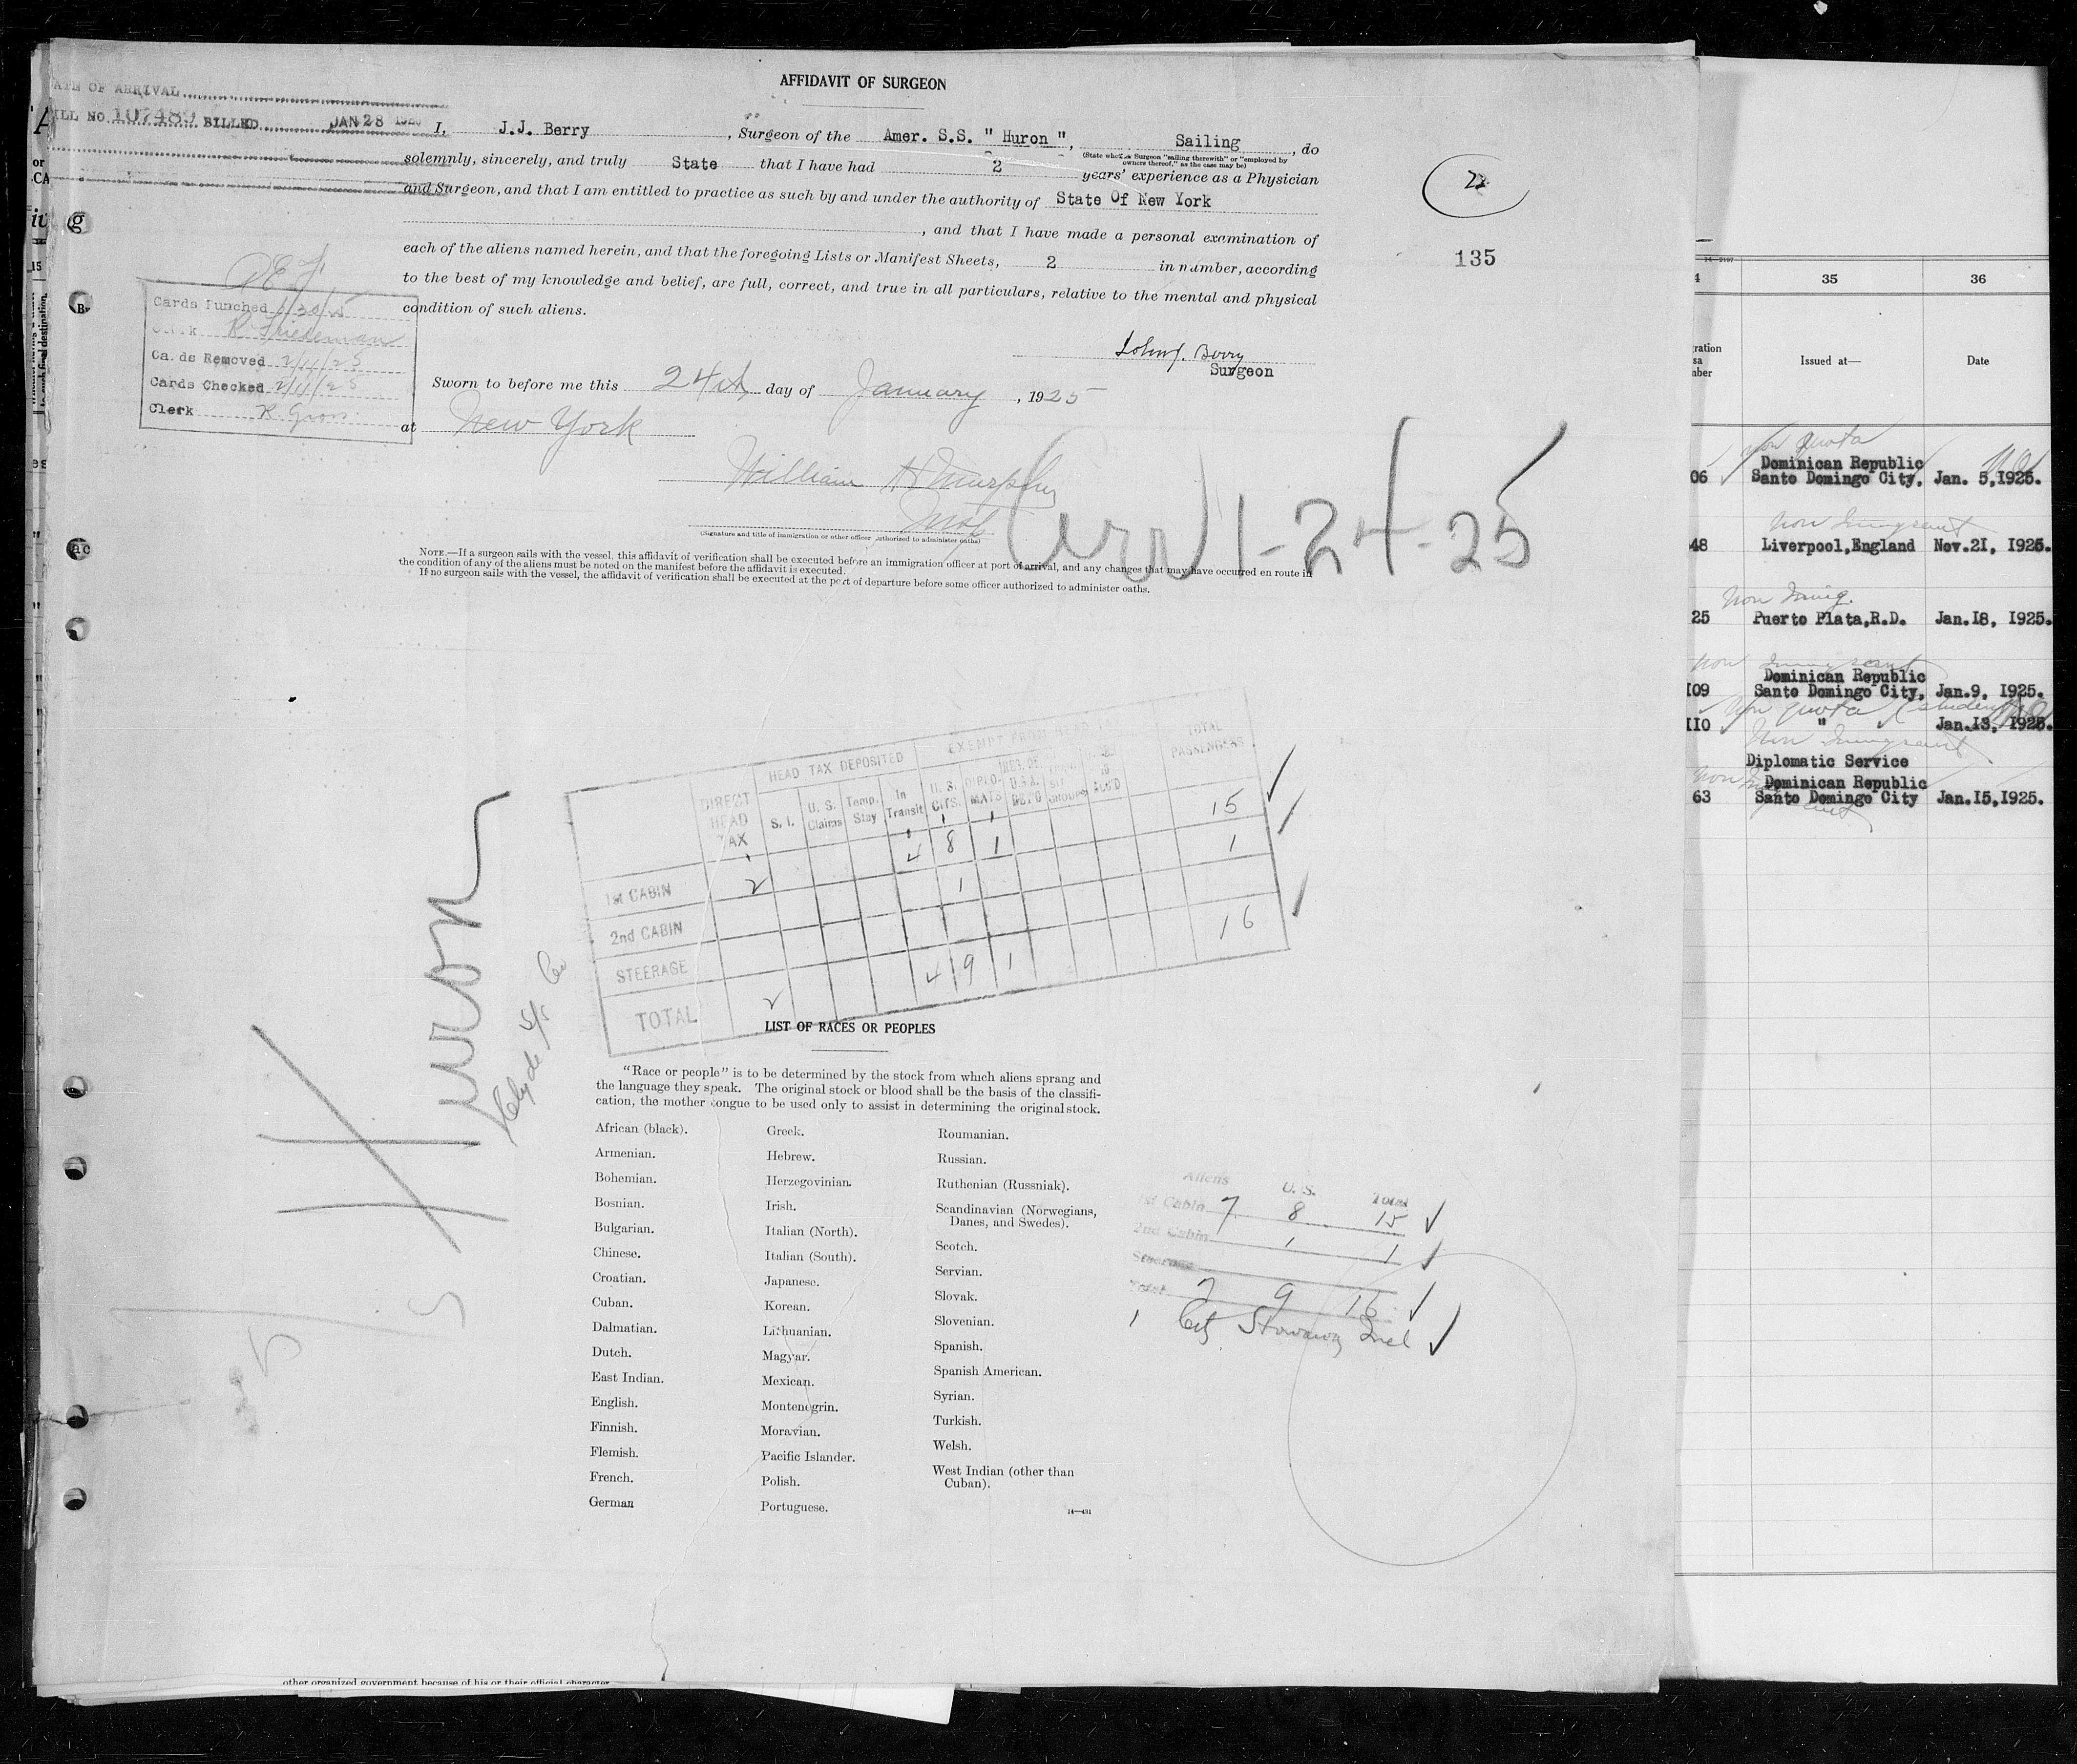 AFFIDAVIT OF SURGEON
ATE OF ARRIVAL
ILL NO 107489 BILLED JAN 28
I, J.J. Berry, Surgeon of the Amer. S.S. " Huron ", Sailing, do
(State whether Surgeon "sailing therewith" or "employed by
owners thereof," as the case may be)
solemnly, sincerely, and truly State that I have had 2 years' experience as a Physician
and Surgeon, and that I am entitled to practice as such by and under the authority of State Of New York
, and that I have made a personal examination of
each of the aliens named herein, and that the foregoing Lists or Manifest Sheets, 2 in number, according
to the best of my knowledge and belief, are full, correct, and true in all particulars, relative to the mental and physical
condition of such aliens.
135
John J. Berry
Surgeon
Cards Punched
Clerk R. Friedeman
Cards Removed 2/11/25
Cards Checked 2/11/25
Clerk R Gross
Sworn to before me this 24th day of January, 1925
at New York
William H Murphy
(Signature and title of immigration or other officer authorized to administer oaths)
Arr 1-24-25
NOTE.—If a surgeon sails with the vessel, this affidavit of verification shall be executed before an immigration officer at port of arrival, and any changes that may have occurred en route in
the condition of any of the aliens must be noted on the manifest before the affidavit is executed.
If no surgeon sails with the vessel, the affidavit of verification shall be executed at the port of departure before some officer authorized to administer oaths.
HEAD TAX DEPOSITED
EXEMPT FROM HEAD
TOTAL PASSENGERS
DIRECT HEAD TAX
S. I.
U. S. Claims
Temp. Stay
In Transit
U. S. CITS.
DIPLO-MATS
1st CABIN 2 4 8 1 15
2nd CABIN 1 1
STEERAGE
TOTAL 2 4 9 1 16
Huron
Clyde S/S Co
LIST OF RACES OR PEOPLES
"Race or people" is to be determined by the stock from which aliens sprang and
the language they speak. The original stock or blood shall be the basis of the classifi-
cation, the mother tongue to be used only to assist in determining the original stock.
African (black).
Armenian.
Bohemian.
Bosnian.
Bulgarian.
Chinese.
Croatian.
Cuban.
Dalmatian.
Dutch.
East Indian.
English.
Finnish.
Flemish.
French.
German
Greek.
Hebrew.
Herzegovinian.
Irish.
Italian (North).
Italian (South).
Japanese.
Korean.
Lithuanian.
Magyar.
Mexican.
Montenegrin.
Moravian.
Pacific Islander.
Polish.
Portuguese.
Roumanian.
Russian.
Ruthenian (Russniak).
Scandinavian (Norwegians,
Danes, and Swedes).
Scotch.
Servian.
Slovak.
Slovenian.
Spanish.
Spanish American.
Syrian.
Turkish.
Welsh.
West Indian (other than
Cuban).
14—431
Aliens U. S. Total
1st Cabin 7 8 15
2nd Cabin 1 1
Steerage
Total 7 9 16
1 Cit Stowaway Incl
other organized government because of his or their official character
35 36
Issued at— Date
non quota
Dominican Republic
06 Santo Domingo City, Jan. 5, 1925.
Non Immigrant
48 Liverpool, England Nov. 21, 1925.
Non Immig.
25 Puerto Plata, R.D. Jan. 18, 1925.
Non Immigrant
Dominican Republic
109 Santo Domingo City, Jan. 9, 1925.
Non quota (student
110 " Jan. 13, 1925.
Non Immigrant
Diplomatic Service
Dominican Republic
63 Santo Domingo City Jan. 15, 1925.